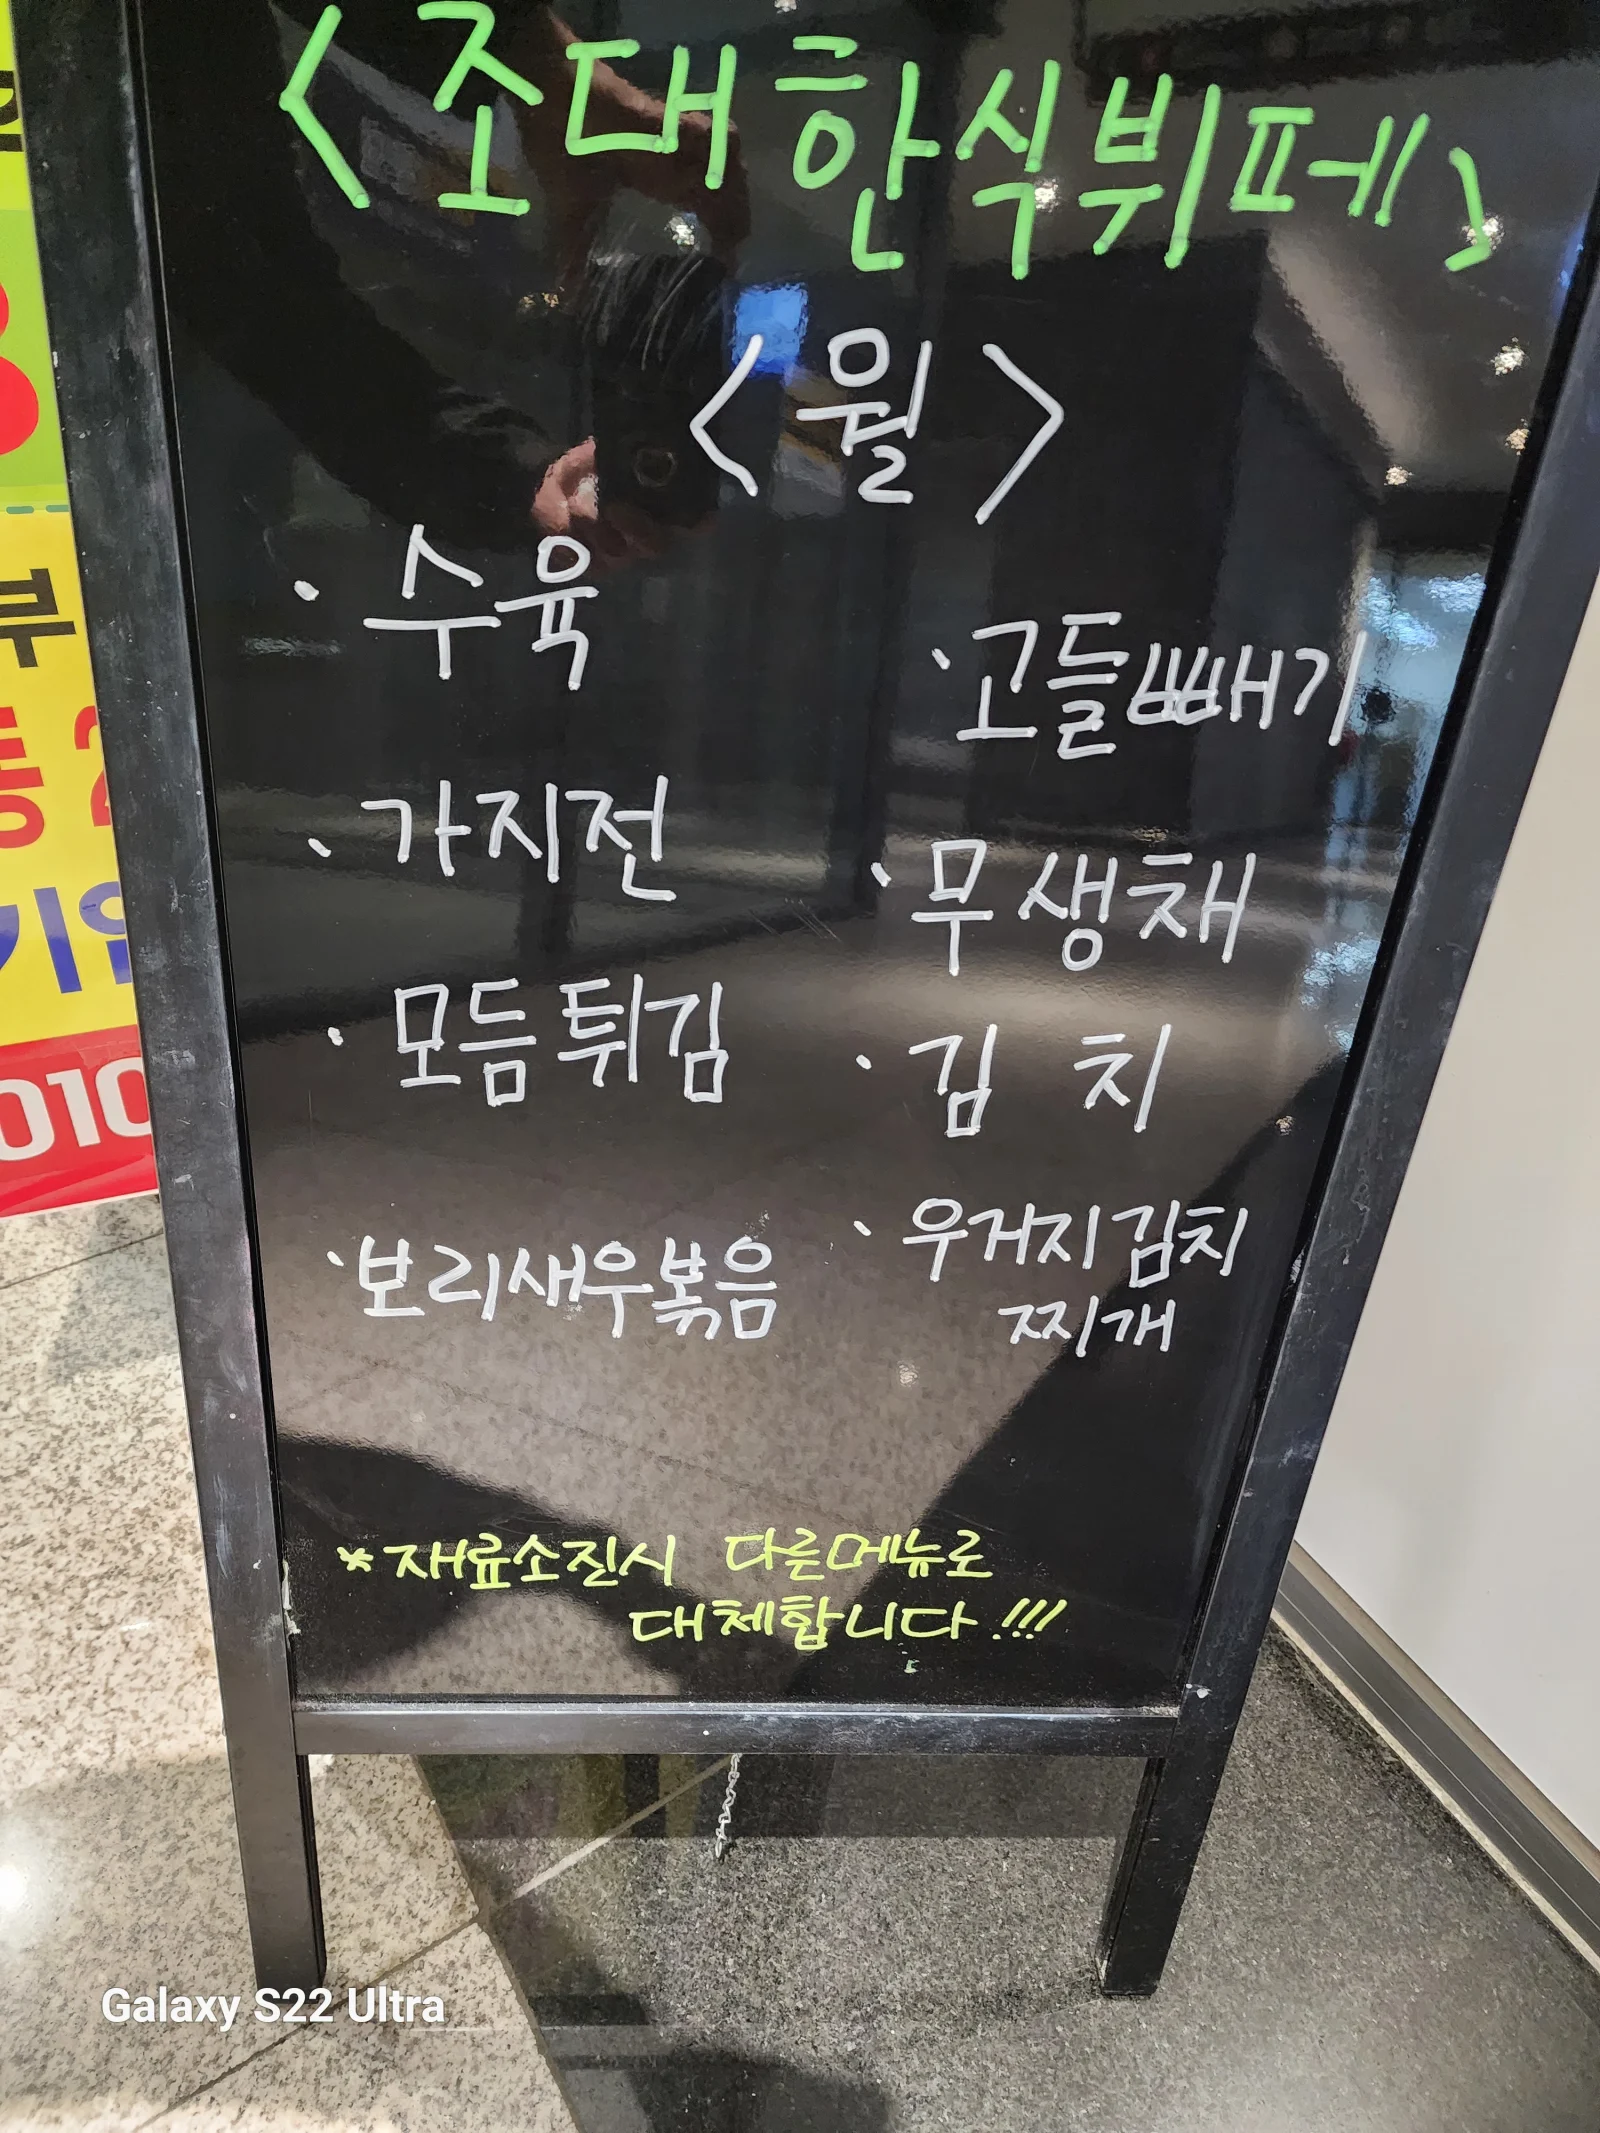 <조대한식뷔페>
<월>
· 수육
· 고들빼기
· 가지전
· 무생채
· 모듬튀김
· 김 치
· 보리새우볶음
· 우거지김치
찌개
* 재료소진시 다른메뉴로
대체합니다!!!!
부
동 2
010
Galaxy S22 Ultra